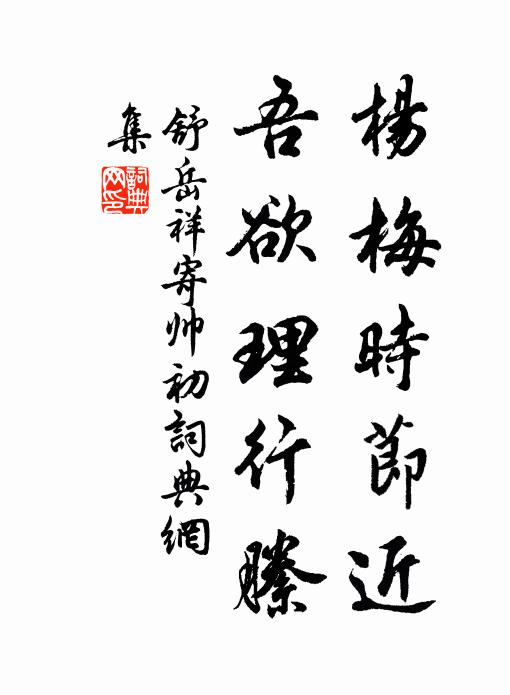 楊梅時節近
吾欲理行縢
舒岳祥寄帅初詞典網
集
詞典
网印